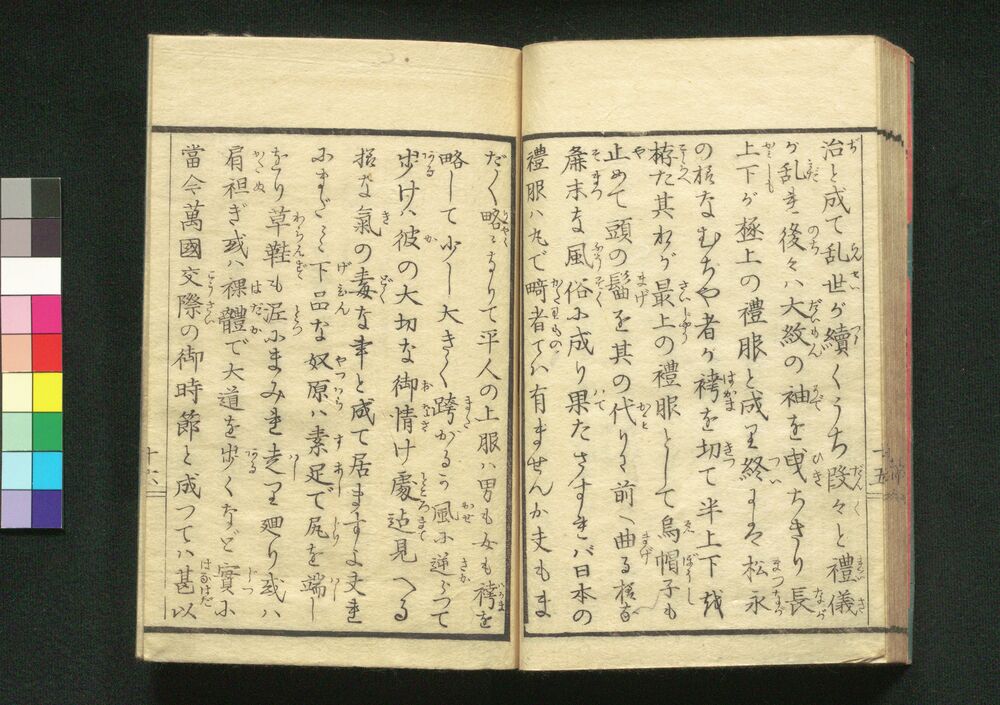 治と成て乱世が續くうち段々と禮儀
が乱れ後々ハ大紋の袖を曳ちぎり長
上下が極上の禮服と成り終にハ松永
の様なむちや者が袴を切て半上下を
拵た其れが最上の禮服として烏帽子も
止めて頭の髷を其の代りに前へ曲る様な
麁末な風俗に成り果たさすれバ日本の
禮服ハ丸で畸者でハ有ませんか夫もま
だ〳〵略になりて平人の上服ハ男も女も袴を
略して少し大きく跨がるか風に逆らつて
歩けバ彼の大切な御情け處迠見へる
様な氣の毒な事と成て居ますよ夫れ
にまだ〳〵下品な奴原ハ素足で尻を端し
をり草鞋も泥にまみれ走り廻り或ハ
肩袒ぎ或ハ裸體で大道を歩くなど實に
當今萬國交際の御時節と成つてハ甚以
十五
十六